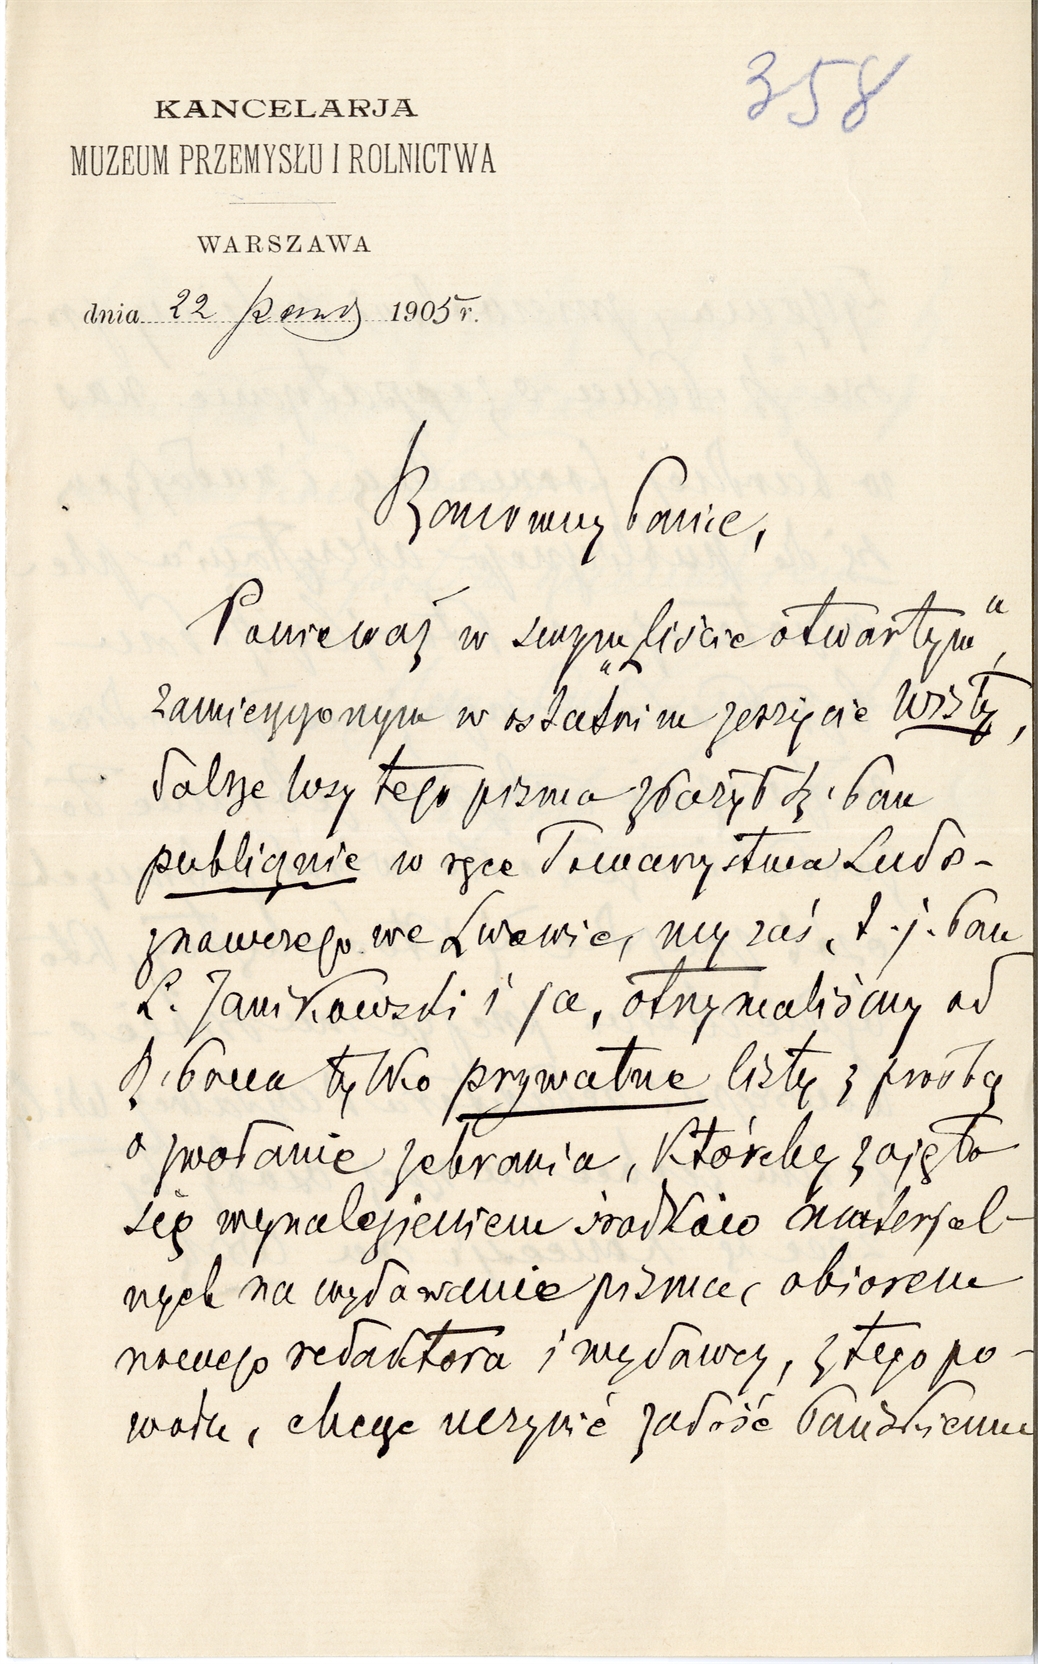 358
KANCELARJA
MUZEUM PRZEMYSŁU I ROLNICTWA
WARSZAWA
dnia 22 1905 r.
Szanowny Panie,
Ponieważ w swym „Liście otwartym",
zamieszczonym w ostatnim zeszycie Wisły,
dalsze losy tego pisma złożył Sz. Pan
publicznie w ręce Towarzystwa Ludo-
znawczego we Lwowie, my zaś, t. j. Pan
L. Janikowski i ja, otrzymaliśmy od
Sz. Pana tylko prywatne listy z prośbą
o zwołanie zebrania, któreby zajęło
się wynalezieniem środków materjal-
nych na wydawanie pisma, obiorem
nowego redaktora i wydawcy, z tego po-
wodu, chcąc uczynić zadość Pańskiemu